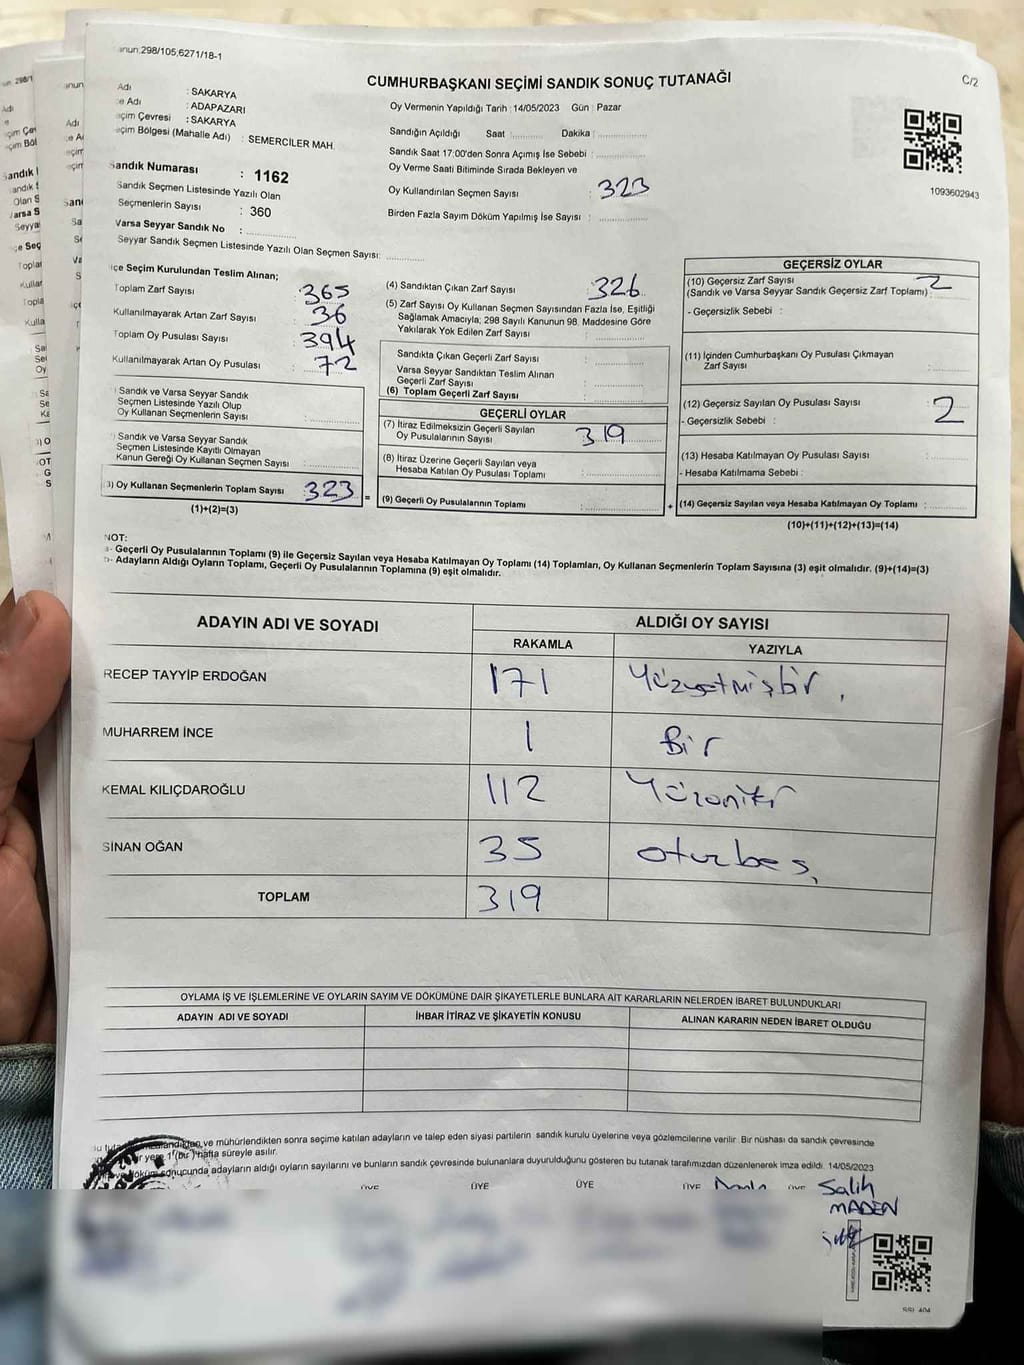 anun:298/105,6271/18-1
CUMHURBAŞKANI SEÇİMİ SANDIK SONUÇ TUTANAĞI
C/2
Adı : SAKARYA
çe Adı : ADAPAZARI
eçim Çevresi : SAKARYA
eçim Bölgesi (Mahalle Adı) : SEMERCİLER MAH.
Oy Vermenin Yapıldığı Tarih : 14/05/2023 Gün : Pazar
Sandığın Açıldığı Saat : Dakika :
Sandık Saat 17:00'den Sonra Açımış İse Sebebi :
Oy Verme Saati Bitiminde Sırada Bekleyen ve
Oy Kullandırılan Seçmen Sayısı : 323
Birden Fazla Sayım Döküm Yapılmış İse Sayısı :
1093602943
Sandık Numarası : 1162
Sandık Seçmen Listesinde Yazılı Olan
Seçmenlerin Sayısı : 360
Varsa Seyyar Sandık No :
Seyyar Sandık Seçmen Listesinde Yazılı Olan Seçmen Sayısı:
lçe Seçim Kurulundan Teslim Alınan;
Toplam Zarf Sayısı : 365
Kullanılmayarak Artan Zarf Sayısı : 36
Toplam Oy Pusulası Sayısı : 394
Kullanılmayarak Artan Oy Pusulası : 72
) Sandık ve Varsa Seyyar Sandık
Seçmen Listesinde Yazılı Olup
Oy Kullanan Seçmenlerin Sayısı :
) Sandık ve Varsa Seyyar Sandık
Seçmen Listesinde Kayıtlı Olmayan
Kanun Gereği Oy Kullanan Seçmen Sayısı :
3) Oy Kullanan Seçmenlerin Toplam Sayısı : 323 =
(1)+(2)=(3)
(4) Sandıktan Çıkan Zarf Sayısı : 326
(5) Zarf Sayısı Oy Kullanan Seçmen Sayısından Fazla İse, Eşitliği
Sağlamak Amacıyla; 298 Sayılı Kanunun 98. Maddesine Göre
Yakılarak Yok Edilen Zarf Sayısı :
Sandıkta Çıkan Geçerli Zarf Sayısı :
Varsa Seyyar Sandıktan Teslim Alınan
Geçerli Zarf Sayısı :
(6) Toplam Geçerli Zarf Sayısı :
GEÇERLİ OYLAR
(7) İtiraz Edilmeksizin Geçerli Sayılan
Oy Pusulalarının Sayısı : 319
(8) İtiraz Üzerine Geçerli Sayılan veya
Hesaba Katılan Oy Pusulası Toplamı :
(9) Geçerli Oy Pusulalarının Toplamı : +
GEÇERSİZ OYLAR
(10) Geçersiz Zarf Sayısı
(Sandık ve Varsa Seyyar Sandık Geçersiz Zarf Toplamı) : 2
- Geçersizlik Sebebi :
(11) İçinden Cumhurbaşkanı Oy Pusulası Çıkmayan
Zarf Sayısı :
(12) Geçersiz Sayılan Oy Pusulası Sayısı : 2
- Geçersizlik Sebebi :
(13) Hesaba Katılmayan Oy Pusulası Sayısı :
- Hesaba Katılmama Sebebi :
(14) Geçersiz Sayılan veya Hesaba Katılmayan Oy Toplamı :
(10)+(11)+(12)+(13)=(14)
NOT:
a- Geçerli Oy Pusulalarının Toplamı (9) ile Geçersiz Sayılan veya Hesaba Katılmayan Oy Toplamı (14) Toplamları, Oy Kullanan Seçmenlerin Toplam Sayısına (3) eşit olmalıdır. (9)+(14)=(3)
b- Adayların Aldığı Oyların Toplamı, Geçerli Oy Pusulalarının Toplamına (9) eşit olmalıdır.
ADAYIN ADI VE SOYADI ALDIĞI OY SAYISI
RAKAMLA YAZIYLA
RECEP TAYYİP ERDOĞAN 171 Yüzyetmişbir,
MUHARREM İNCE 1 Bir
KEMAL KILIÇDAROĞLU 112 Yüzoniki
SİNAN OĞAN 35 oturbeş,
TOPLAM 319
OYLAMA İŞ VE İŞLEMLERİNE VE OYLARIN SAYIM VE DÖKÜMÜNE DAİR ŞİKAYETLERLE BUNLARA AİT KARARLARIN NELERDEN İBARET BULUNDUKLARI
ADAYIN ADI VE SOYADI İHBAR İTİRAZ VE ŞİKAYETİN KONUSU ALINAN KARARIN NEDEN İBARET OLDUĞU
ve mühürlendikten sonra seçime katılan adayların ve talep eden siyasi partilerin sandık kurulu üyelerine veya gözlemcilerine verilir. Bir nüshası da sandık çevresinde
yere 1 (bir) hafta süreyle asılır.
döküm sonucunda adayların aldığı oyların sayılarını ve bunların sandık çevresinde bulunanlara duyurulduğunu gösteren bu tutanak tarafımızdan düzenlenerek imza edildi. 14/05/2023
ÜYE ÜYE ÜYE ÜYE ÜYE Salih
MADEN